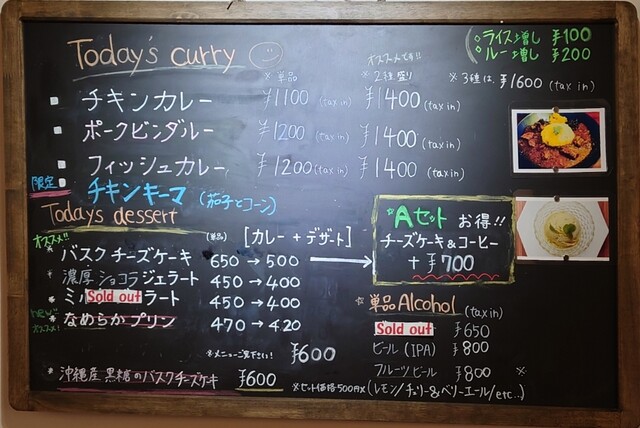 Today's curry
◇ライス増し ¥100
◇ルー増し ¥200
オススメです!!
※単品 ※2種盛り ※3種は、¥1600 (tax in)
チキンカレー ¥1100 (tax in) ¥1400 (tax in)
ポークビンダルー ¥1200 (tax in) ¥1400 (tax in)
フィッシュカレー ¥1200 (tax in) ¥1400 (tax in)
限定 チキンキーマ (茄子とコーン)
Todays dessert
オススメ!! (単品) [カレー + デザート]
バスクチーズケーキ 650 → 500
濃厚ショコラジェラート 450 → 400
ミル Sold out ラート 450 → 400
NEW オススメ! なめらかプリン 470 → 420
¥600
沖縄産 黒糖のバスクチーズケーキ ¥600 ※セット価格500円
Aセット お得!!
チーズケーキ&コーヒー
+ ¥700
☆単品Alcohol (tax in)
Sold out ¥650
ビール (IPA) ¥800
フルーツビール ¥800 ※
※(レモン/チェリー&ベリーエール/etc..)